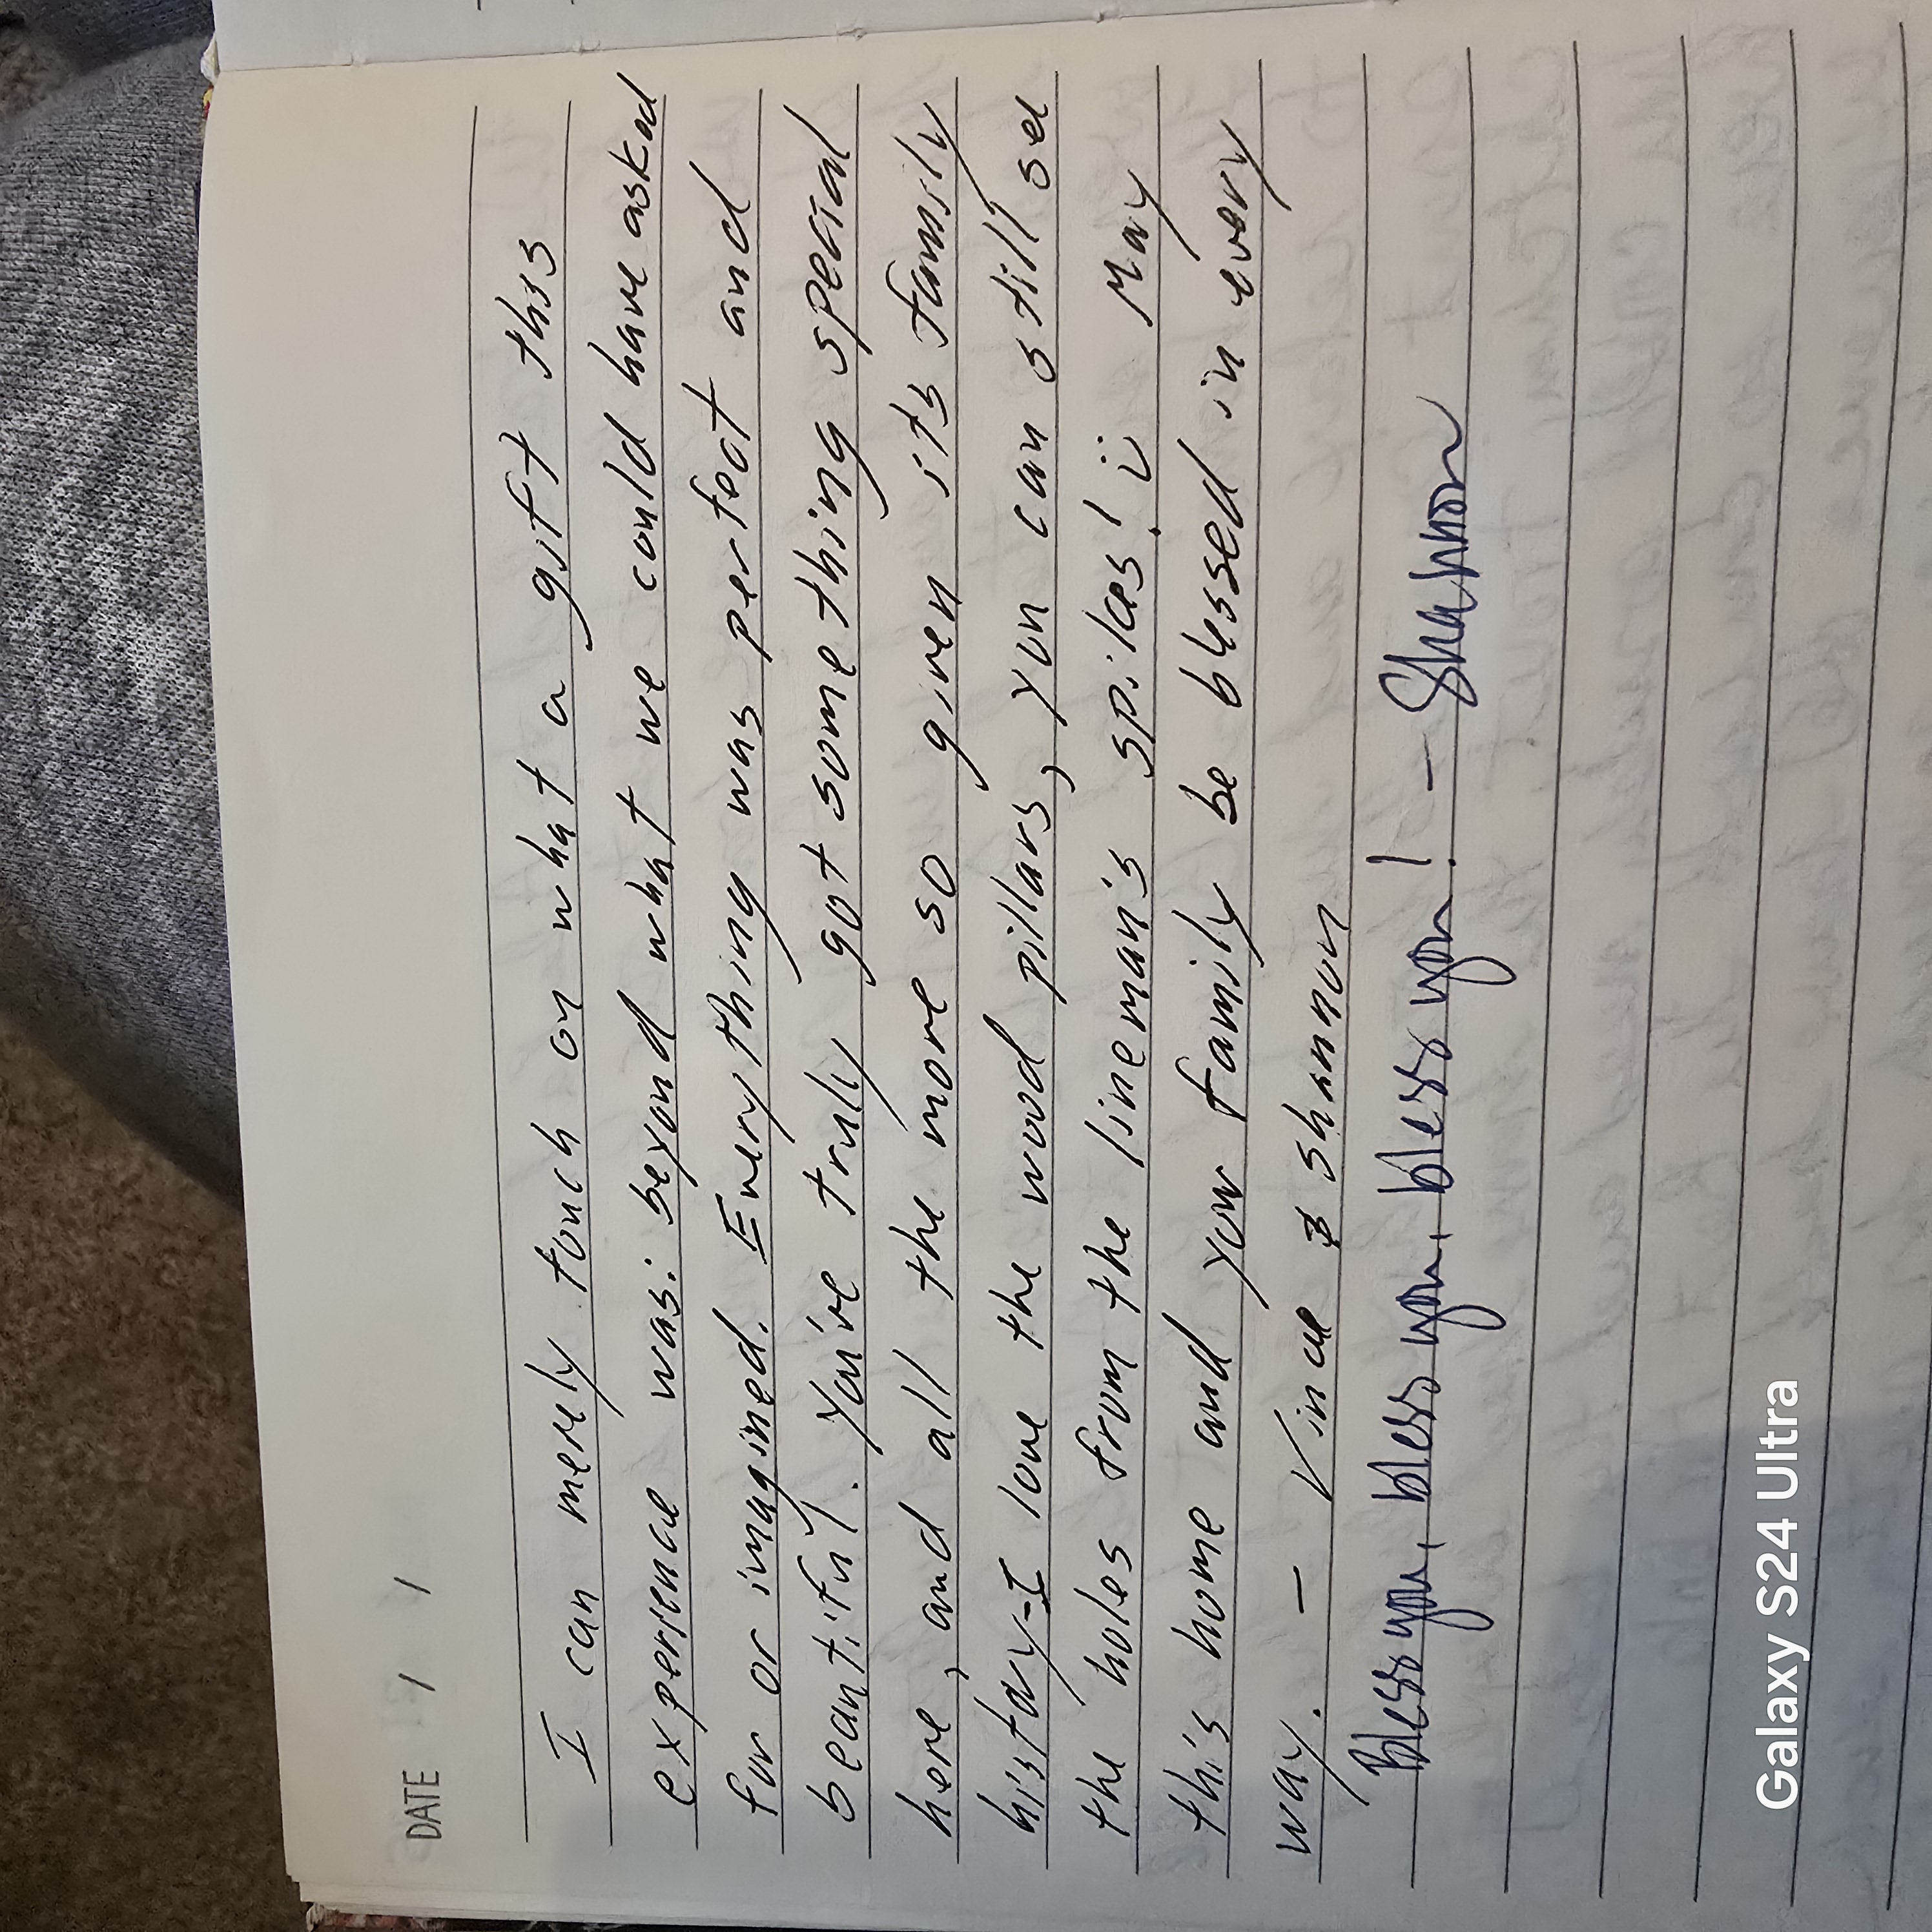 DATE / /
I can merely touch on what a gift this
experience was: beyond what we could have asked
for or imagined. Everything was perfect and
beautiful. You've truly got something special
here, and all the more so given its family
history-I love the wood pillars, you can still see
the holes from the lineman's spikes! :) May
this home and your family be blessed in every
way. – Vince & Shannon
Bless you, bless you, bless you! – Shannon
Galaxy S24 Ultra